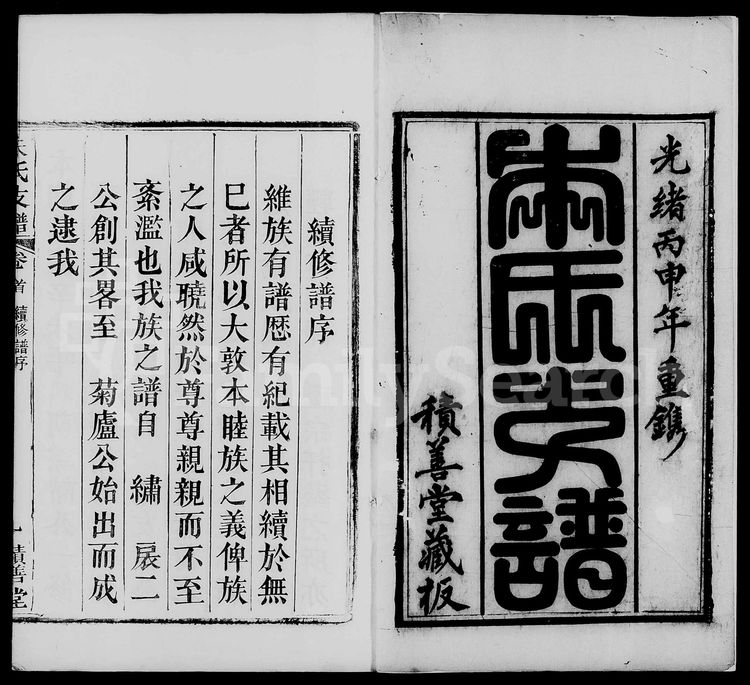 光緒丙申年重鐫
朱氏支譜
積善堂藏板
續修譜序
維族有譜厯有紀載其相續於無
巳者所以大敦本睦族之義俾族
之人咸曉然於尊尊親親而不至
紊濫也我族之譜自 繡 扆二
公創其畧至 菊廬公始出而成
之逮我
朱氏支譜 卷首 續修譜序 一 積善堂
FamilySearch